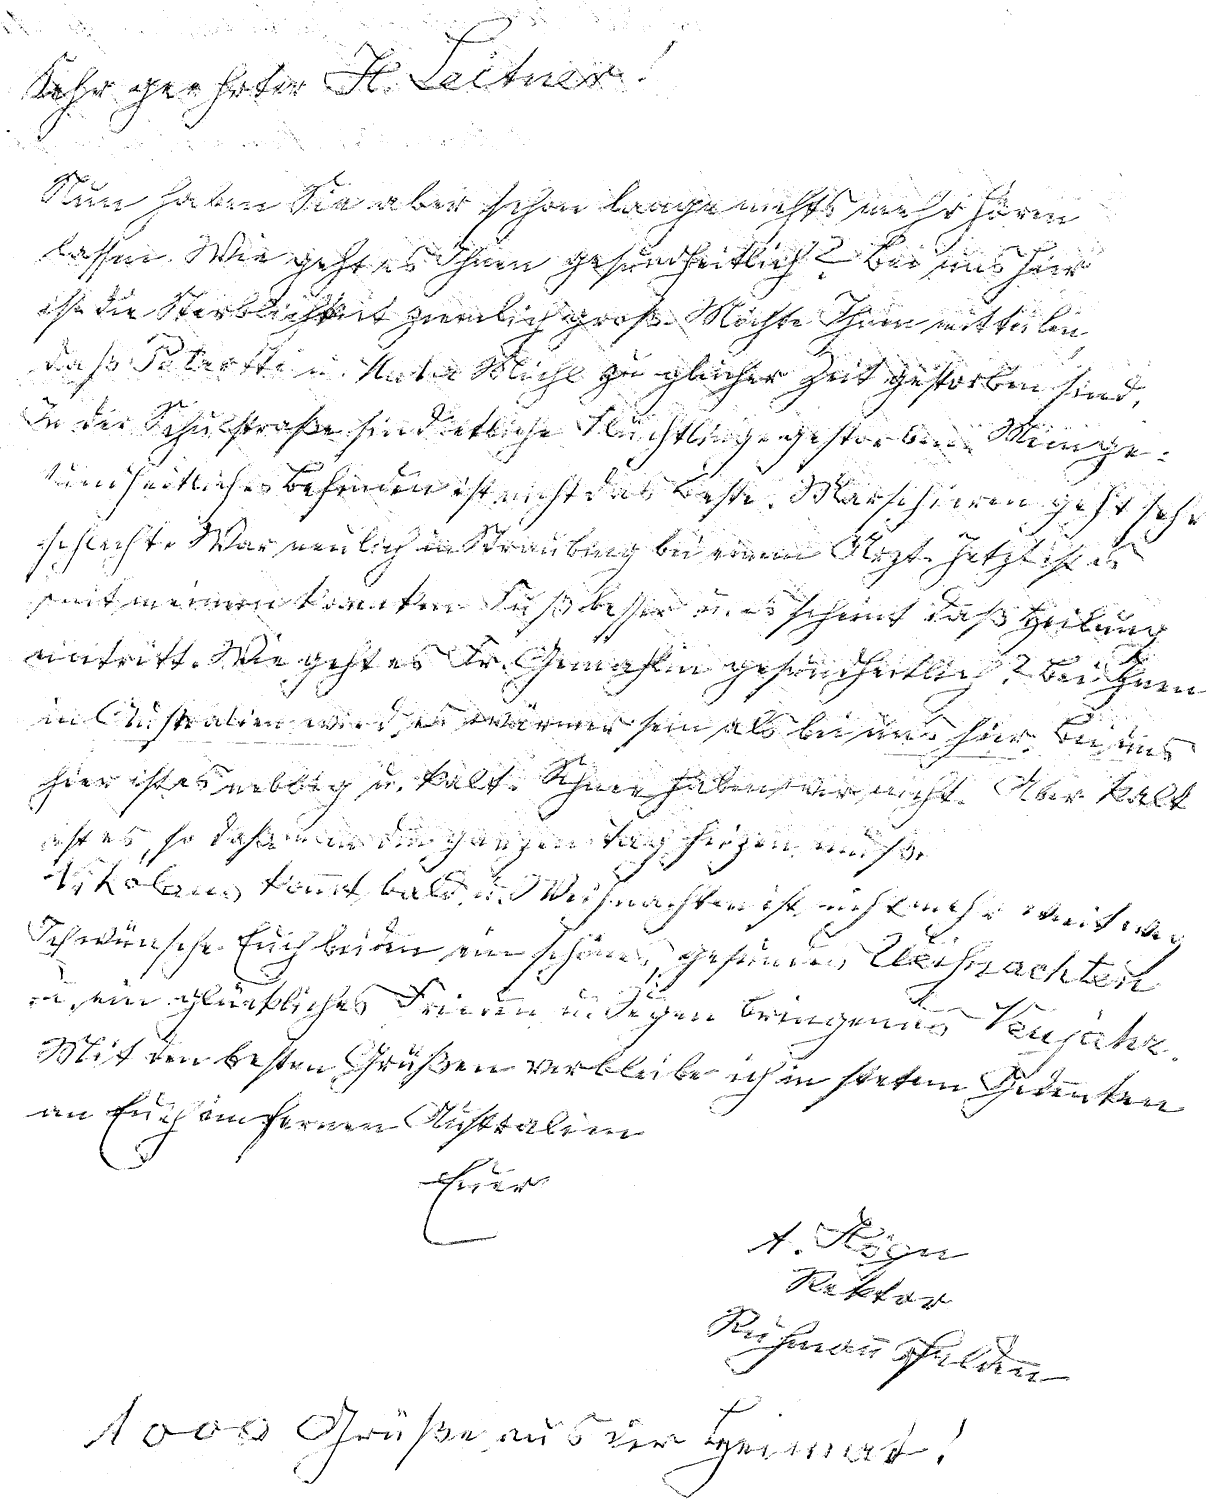 Sehr geehrter H. Leitner!
Nun haben Sie aber schon lange nichts mehr hören
lassen. Wie geht es Ihnen gesundheitlich? Bei uns hier
ist die Sterblichkeit ziemlich groß. Möchte Ihnen mitteilen,
daß u. Michl zu gleicher Zeit gestorben sind.
In der Schulstraße sind etliche Flüchtlinge gestorben. Mein ge-
sundheitliches Befinden ist nicht das beste. Marschieren geht sehr
schlecht. War neulich in Straubing bei einem Arzt. Jetzt ist es
mit meinem kranken Fuß besser u. es scheint daß Heilung
eintritt. Wie geht es Fr. Gemahlin gesundheitlich? Bei Ihnen
in Australien wird es wärmer sein als bei uns hier. Bei uns
hier ist es neblig u. kalt. Schnee haben wir nicht. Aber kalt
ist es, so daß man den ganzen Tag heizen muß.
Nikolaus kommt bald u. Weihnachten ist nicht mehr weit weg
Ich wünsche Euch beiden ein schönes, gesundes Weihnachten
u. ein glückliches Frieden u. Segen bringendes Neujahr.
Mit den besten Grüßen verbleibe ich in stetem Gedenken
an Euch im fernen Australien
Euer
A. Högn
Rektor
Ruhmannsfelden
1000 Grüße aus der Heimat!